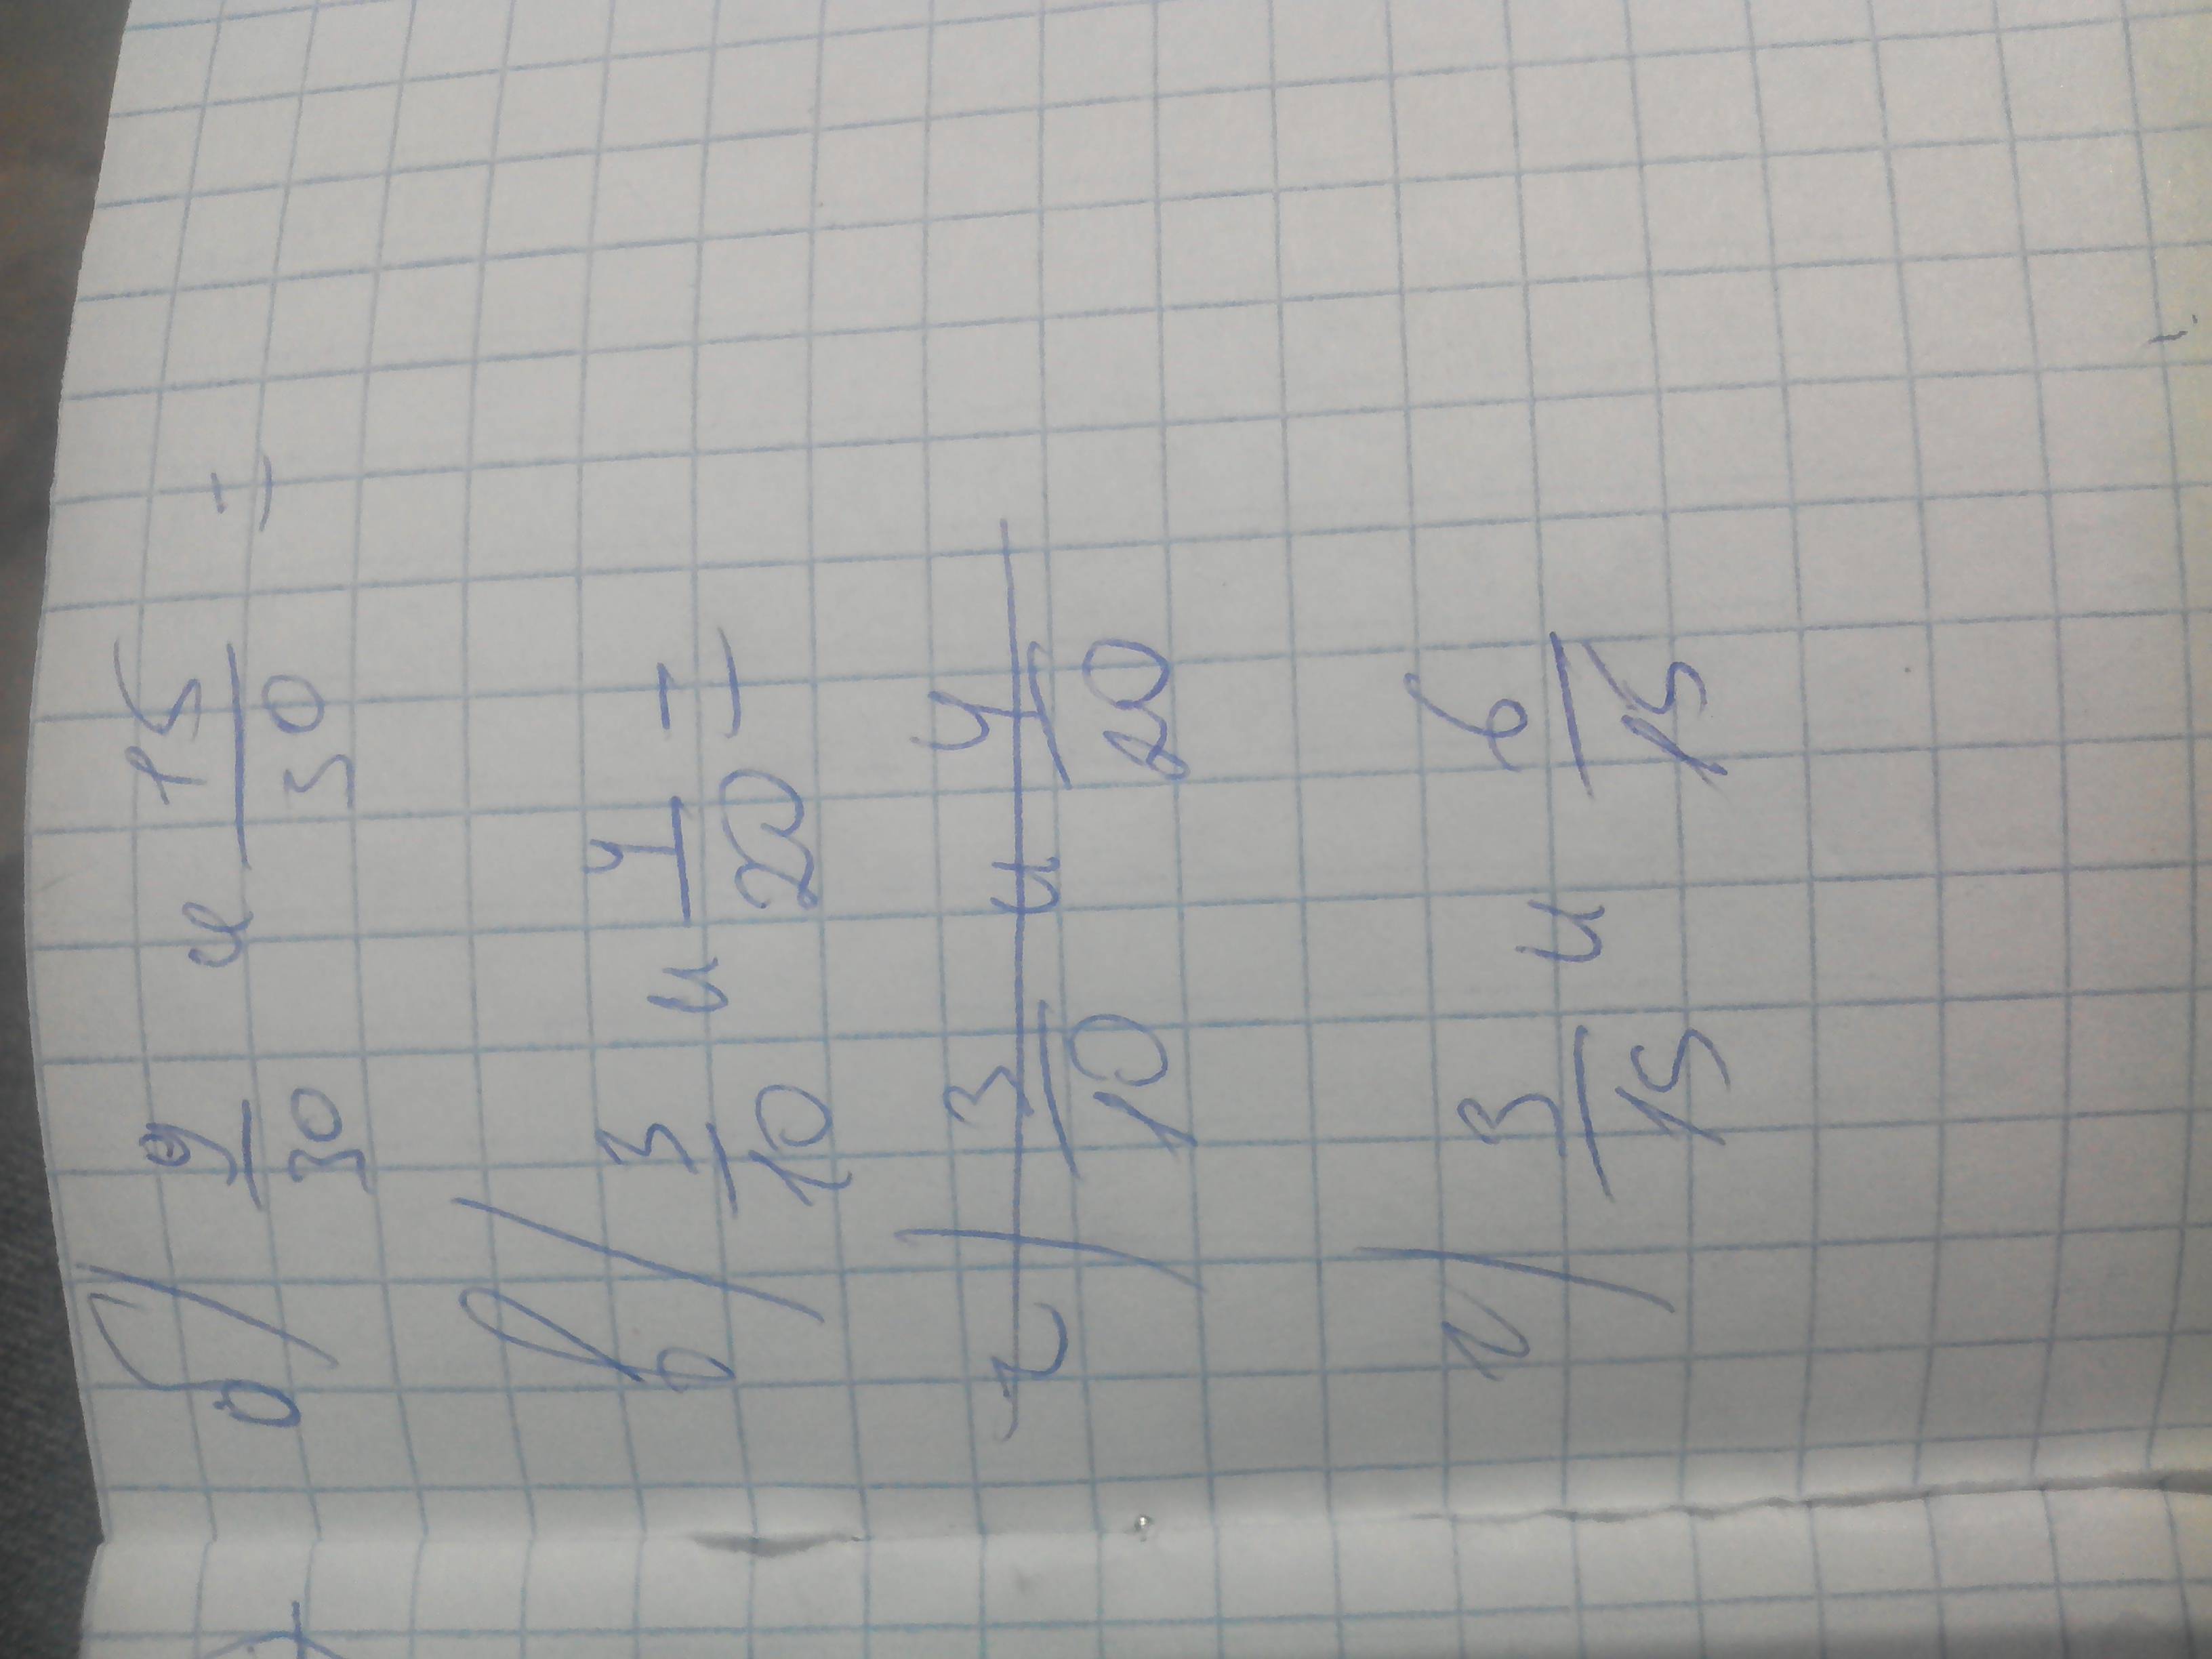 б) 9/30 и 15/30 =
в) 3/10 и 4/20 =
г) 3/10 и 4/20
г) 3/15 и 6/15